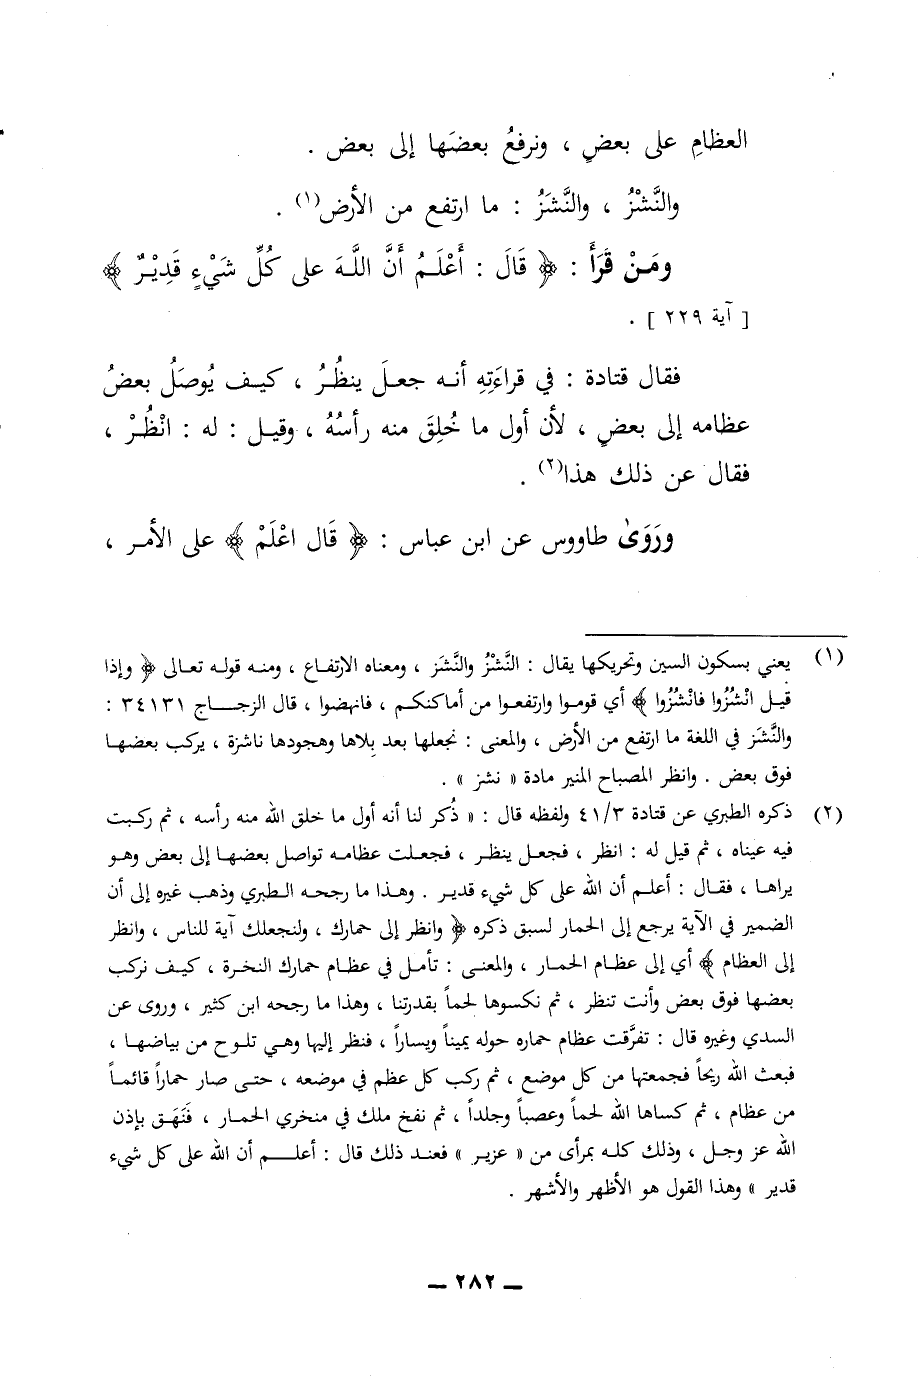 العظامِ على بعضٍ ، ونرفعُ بعضَها إلى بعض .
والنَّشْزُ ، والنَّشَزُ : ما ارتفع من الأرض(١) .
ومَنْ قَرَأَ : ﴿ قَالَ : أَعْلَمُ أَنَّ اللَّهَ على كُلِّ شَيْءٍ قَدِيْرٌ ﴾
[ آية ٢٢٩ ] .
فقال قتادة : في قراءَتِهِ أنه جعلَ ينظُرُ ، كيف يُوصَلُ بعضُ
عظامه إلى بعضٍ ، لأن أول ما خُلِقَ منه رأسُهُ ، وقيل : له : انْظُرْ ،
فقال عن ذلك هذا(٢) .
ورَوَىٰ طاووس عن ابن عباس : ﴿ قَال اعْلَمْ ﴾ على الأمر ،
(١) يعني بسكون السين وتحريكها يقال : النَّشْزُ والنَّشَز ، ومعناه الارتفاع ، ومنه قوله تعالى ﴿ وإذا
قيل انْشُزُوا فانْشُزُوا ﴾ أي قوموا وارتفعوا من أماكنكم ، فانهضوا ، قال الزجاج ٣٤١٣١ :
والنَّشَز في اللغة ما ارتفع من الأرض ، والمعنى : نجعلها بعد بِلاها وهجودها ناشزة ، يركب بعضها
فوق بعض . وانظر المصباح المنير مادة « نشز » .
(٢) ذكره الطبري عن قتادة ٤١/٣ ولفظه قال : « ذُكر لنا أنه أول ما خلق الله منه رأسه ، ثم ركبت
فيه عيناه ، ثم قيل له : انظر ، فجعل ينظر ، فجعلت عظامه تواصل بعضها إلى بعض وهو
يراها ، فقال : أعلم أن الله على كل شيء قدير . وهذا ما رجحه الطبري وذهب غيره إلى أن
الضمير في الآية يرجع إلى الحمار لسبق ذكره ﴿ وانظر إلى حمارك ، ولنجعلك آية للناس ، وانظر
إلى العظام ﴾ أي إلى عظام الحمار ، والمعنى : تأمل في عظام حمارك النخرة ، كيف نركب
بعضها فوق بعض وأنت تنظر ، ثم نكسوها لحماً بقدرتنا ، وهذا ما رجحه ابن كثير ، وروى عن
السدي وغيره قال : تفرَّقت عظام حماره حوله يميناً ويساراً ، فنظر إليها وهي تلوح من بياضها ،
فبعث الله ريحاً فجمعتها من كل موضع ، ثم ركب كل عظم في موضعه ، حتى صار حماراً قائماً
من عظام ، ثم كساها الله لحماً وعصباً وجلداً ، ثم نفخ ملك في منخري الحمار ، فَنَهَق بإذن
الله عز وجل ، وذلك كله بمرأى من « عزير » فعند ذلك قال : أعلم أن الله على كل شيء
قدير » وهذا القول هو الأظهر والأشهر .
ــ ٢٨٢ ــ